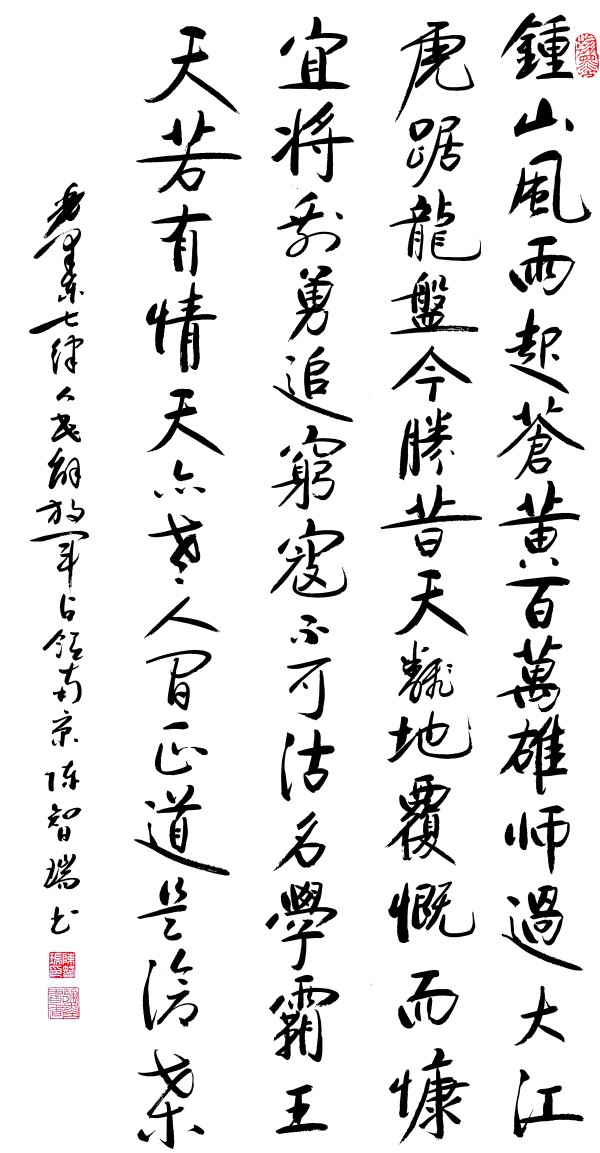 鍾山風雨起蒼黃百萬雄师過大江
虎踞龍盤今勝昔天翻地覆慨而慷
宜将剩勇追窮寇不可沽名學霸王
天若有情天亦老人間正道是滄桑
毛澤東七律人民解放軍占領南京陳智瑞书